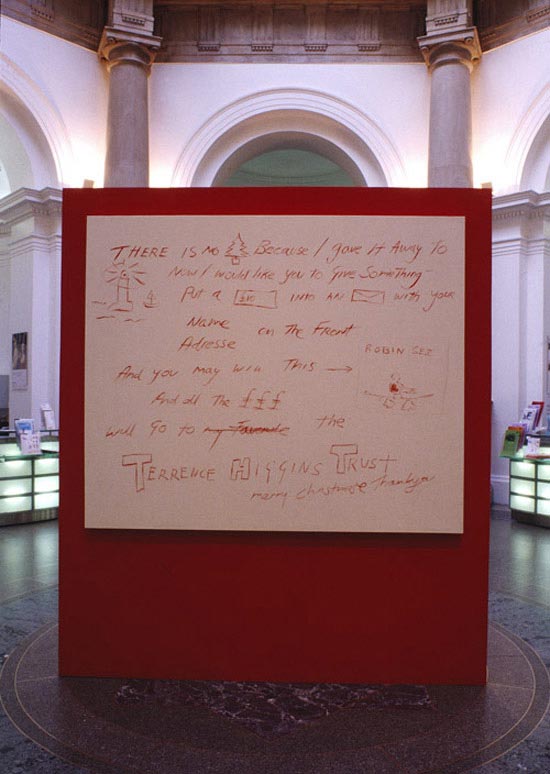 THERE IS NO Because I gave It Away To
Now I would like you to Give Something
Put a £10 INTO AN with your
Name on The Front
Adresse
And you may win This
ROBIN SEZ
And all The £ £ £
will Go to my Favourite the
TERRENCE HIGGINS TRUST
merry christmas Thankyou